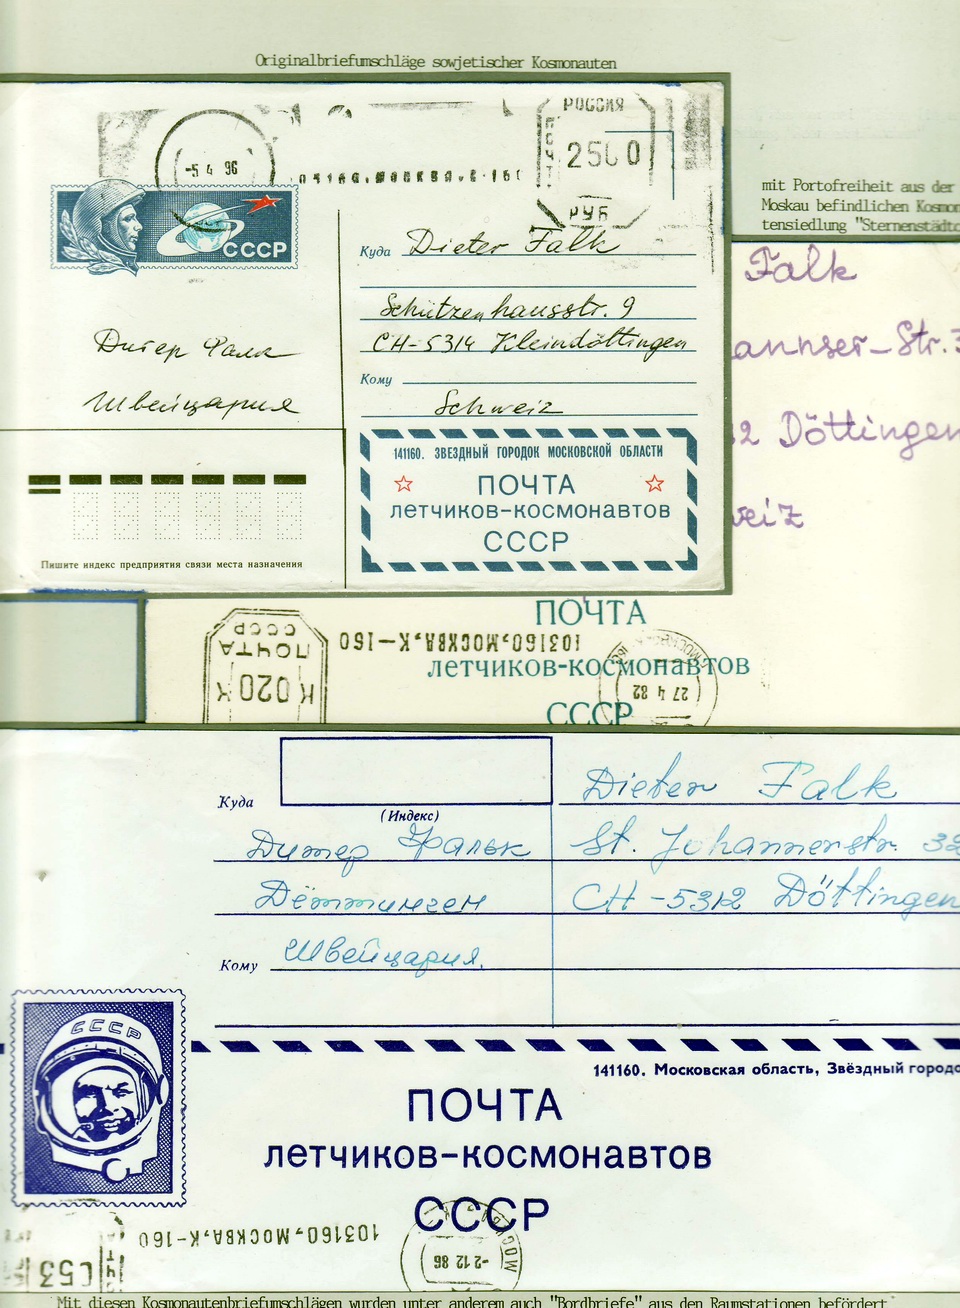 Originalbriefumschläge sowjetischer Kosmonauten
РОССИЯ
ПОЧТА
2500
РУБ
-5 4 96
СССР
mit Portofreiheit aus der
Moskau befindlichen Kosmon
tensiedlung "Sternenstädtc
Куда Dieter Falk
Schützenhausstr. 9
CH-5314 Kleindöttingen
Кому
Schweiz
Дитер Фалк
Швейцария
141160. ЗВЕЗДНЫЙ ГОРОДОК МОСКОВСКОЙ ОБЛАСТИ
ПОЧТА
ЛЕТЧИКОВ-КОСМОНАВТОВ
СССР
Пишите индекс предприятия связи места назначения
Falk
annser-Str.3
2 Döttingen
weiz
СССР
ПОЧТА
К 020 К
103160, МОСКВА, К-160
27 4 82
ПОЧТА
ЛЕТЧИКОВ-КОСМОНАВТОВ
СССР
Куда
(Индекс)
Dieter Falk
Дитер Фальк
St. Johannerstr. 32
Дёттинген
CH-5312 Döttingen
Кому Швейцария.
СССР
141160. Московская область, Звёздный городо
ПОЧТА
ЛЕТЧИКОВ-КОСМОНАВТОВ
СССР
103160, МОСКВА, К-160
-2 12 86
MOSCOW
C53
Mit diesen Kosmonautenbriefumschlägen wurden unter anderem auch "Bordbriefe" aus den Raumstationen befördert